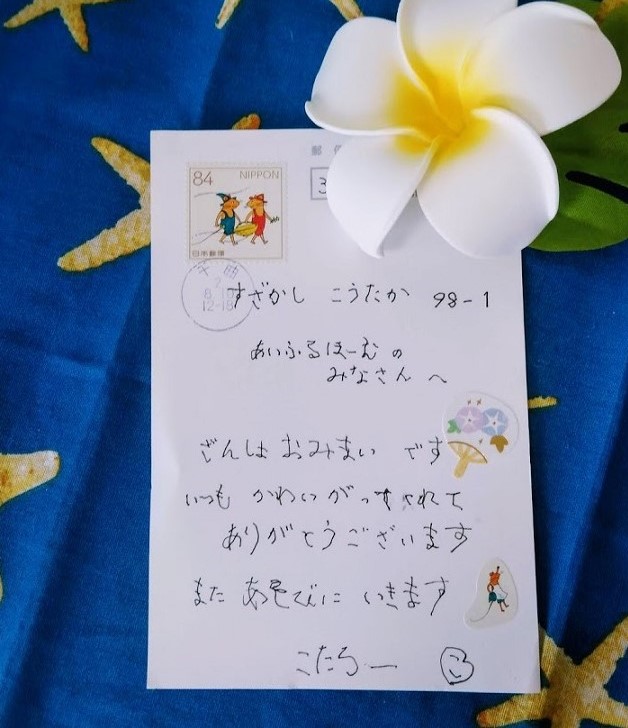 郵
84 NIPPON
3
日本郵便
千曲
2
8.19
12-18
すざかし こうたか 98-1
あいふるほーむの
みなさんへ
ざんしょおみまい です
いつも かわいがってくれて
ありがとうございます
また あそびに いきます
こたろー ころ